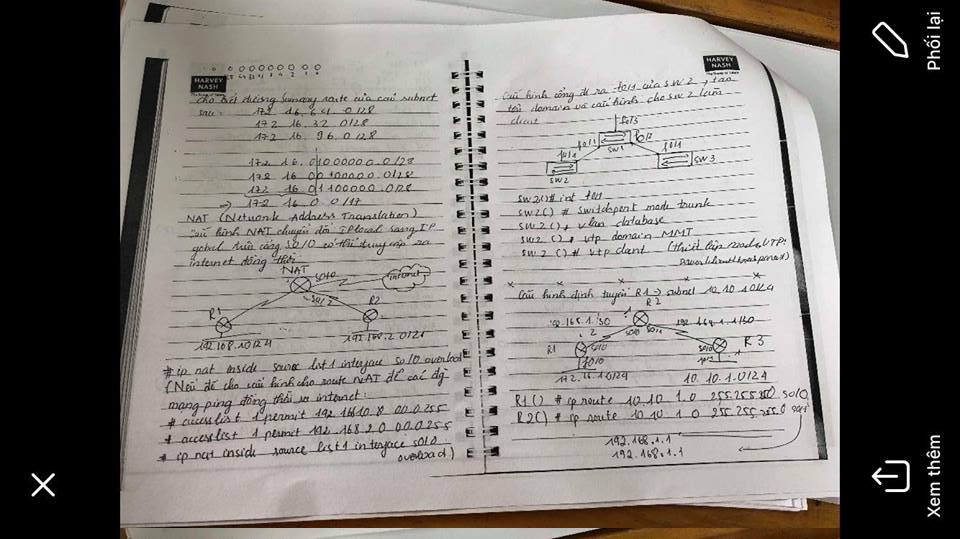 HARVEY
NASH
Cho biết đường Sumary route của các subnet
sau: 172 16.64.0/28
172 16.32 0/28
172 16. 96.0/28
172 16. 01000000.0/28
172 16 00100000.0/28
172 16 01100000.0/28
→ 172 16 0 0/17
NAT (Network Address Translation)
Cấu hình NAT chuyển đổi IP local sang IP
gobal trên cổng S0/0 có thể truy cập ra
internet đồng thời
NAT
S0/0
internet
S0/2
R1
R2
192.168.1.0/24
192.168.2.0/24
# ip nat inside source list 1 interface S0/0 overload
(Nếu đề cho cấu hình cho route NAT để các đg
mạng ping đồng thời ra internet:
# access list 1 permit 192.168.10.8 0.0.0.255
# access list 1 permit 192.168 2.0 0.0.0.255
# ip nat inside source list 1 interface S0/0
overload)
HARVEY
NASH
Cấu hình cổng đi ra f0/1 của SW2, tạo
domain và cấu hình cho SW2 làm
client
f0/3
f0/1
f0/2
SW1
f0/1
f0/1
SW2
SW3
SW2()# int f0/1
SW2() # Switchport mode trunk
SW2() # vlan database
SW2() # vtp domain MMT
SW2 () # vtp client (Thiết lập mode VTP:
Cấu hình định tuyến R1 → subnet 10.10.1.0/24
R2
192.168.1./30
192.168.1.1/30
2
S0/0
S0/1
R1
S0/0
S0/0
R3
f0/0
172.16.1.0/24
10.10.1.0/24
R1() # ip route 10.10 1.0 255.255.255.0 S0/0
R2() # ip route 10.10 1 0 255.255.255.0 S0/1
192.168.1.1
192.168.1.1
Phối lại
Xem thêm